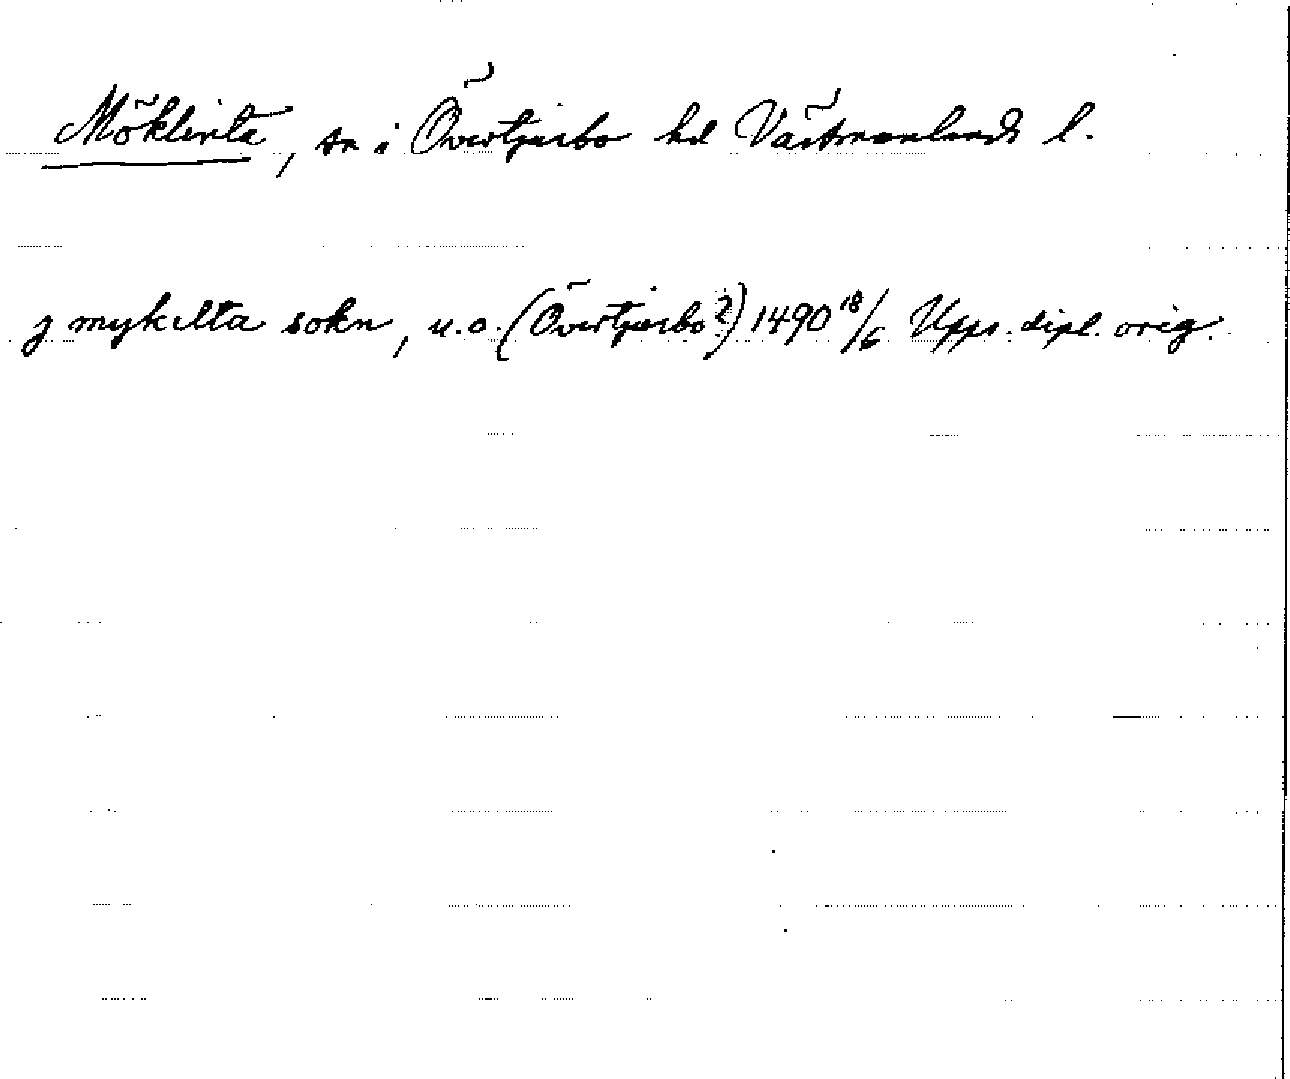 Möklinta, sn i Övertjurbo hd Västmanlands l.
j mykilta sokn, u.o. (Övertjurbo?) 1490 18/6 Upps. dipl. orig.